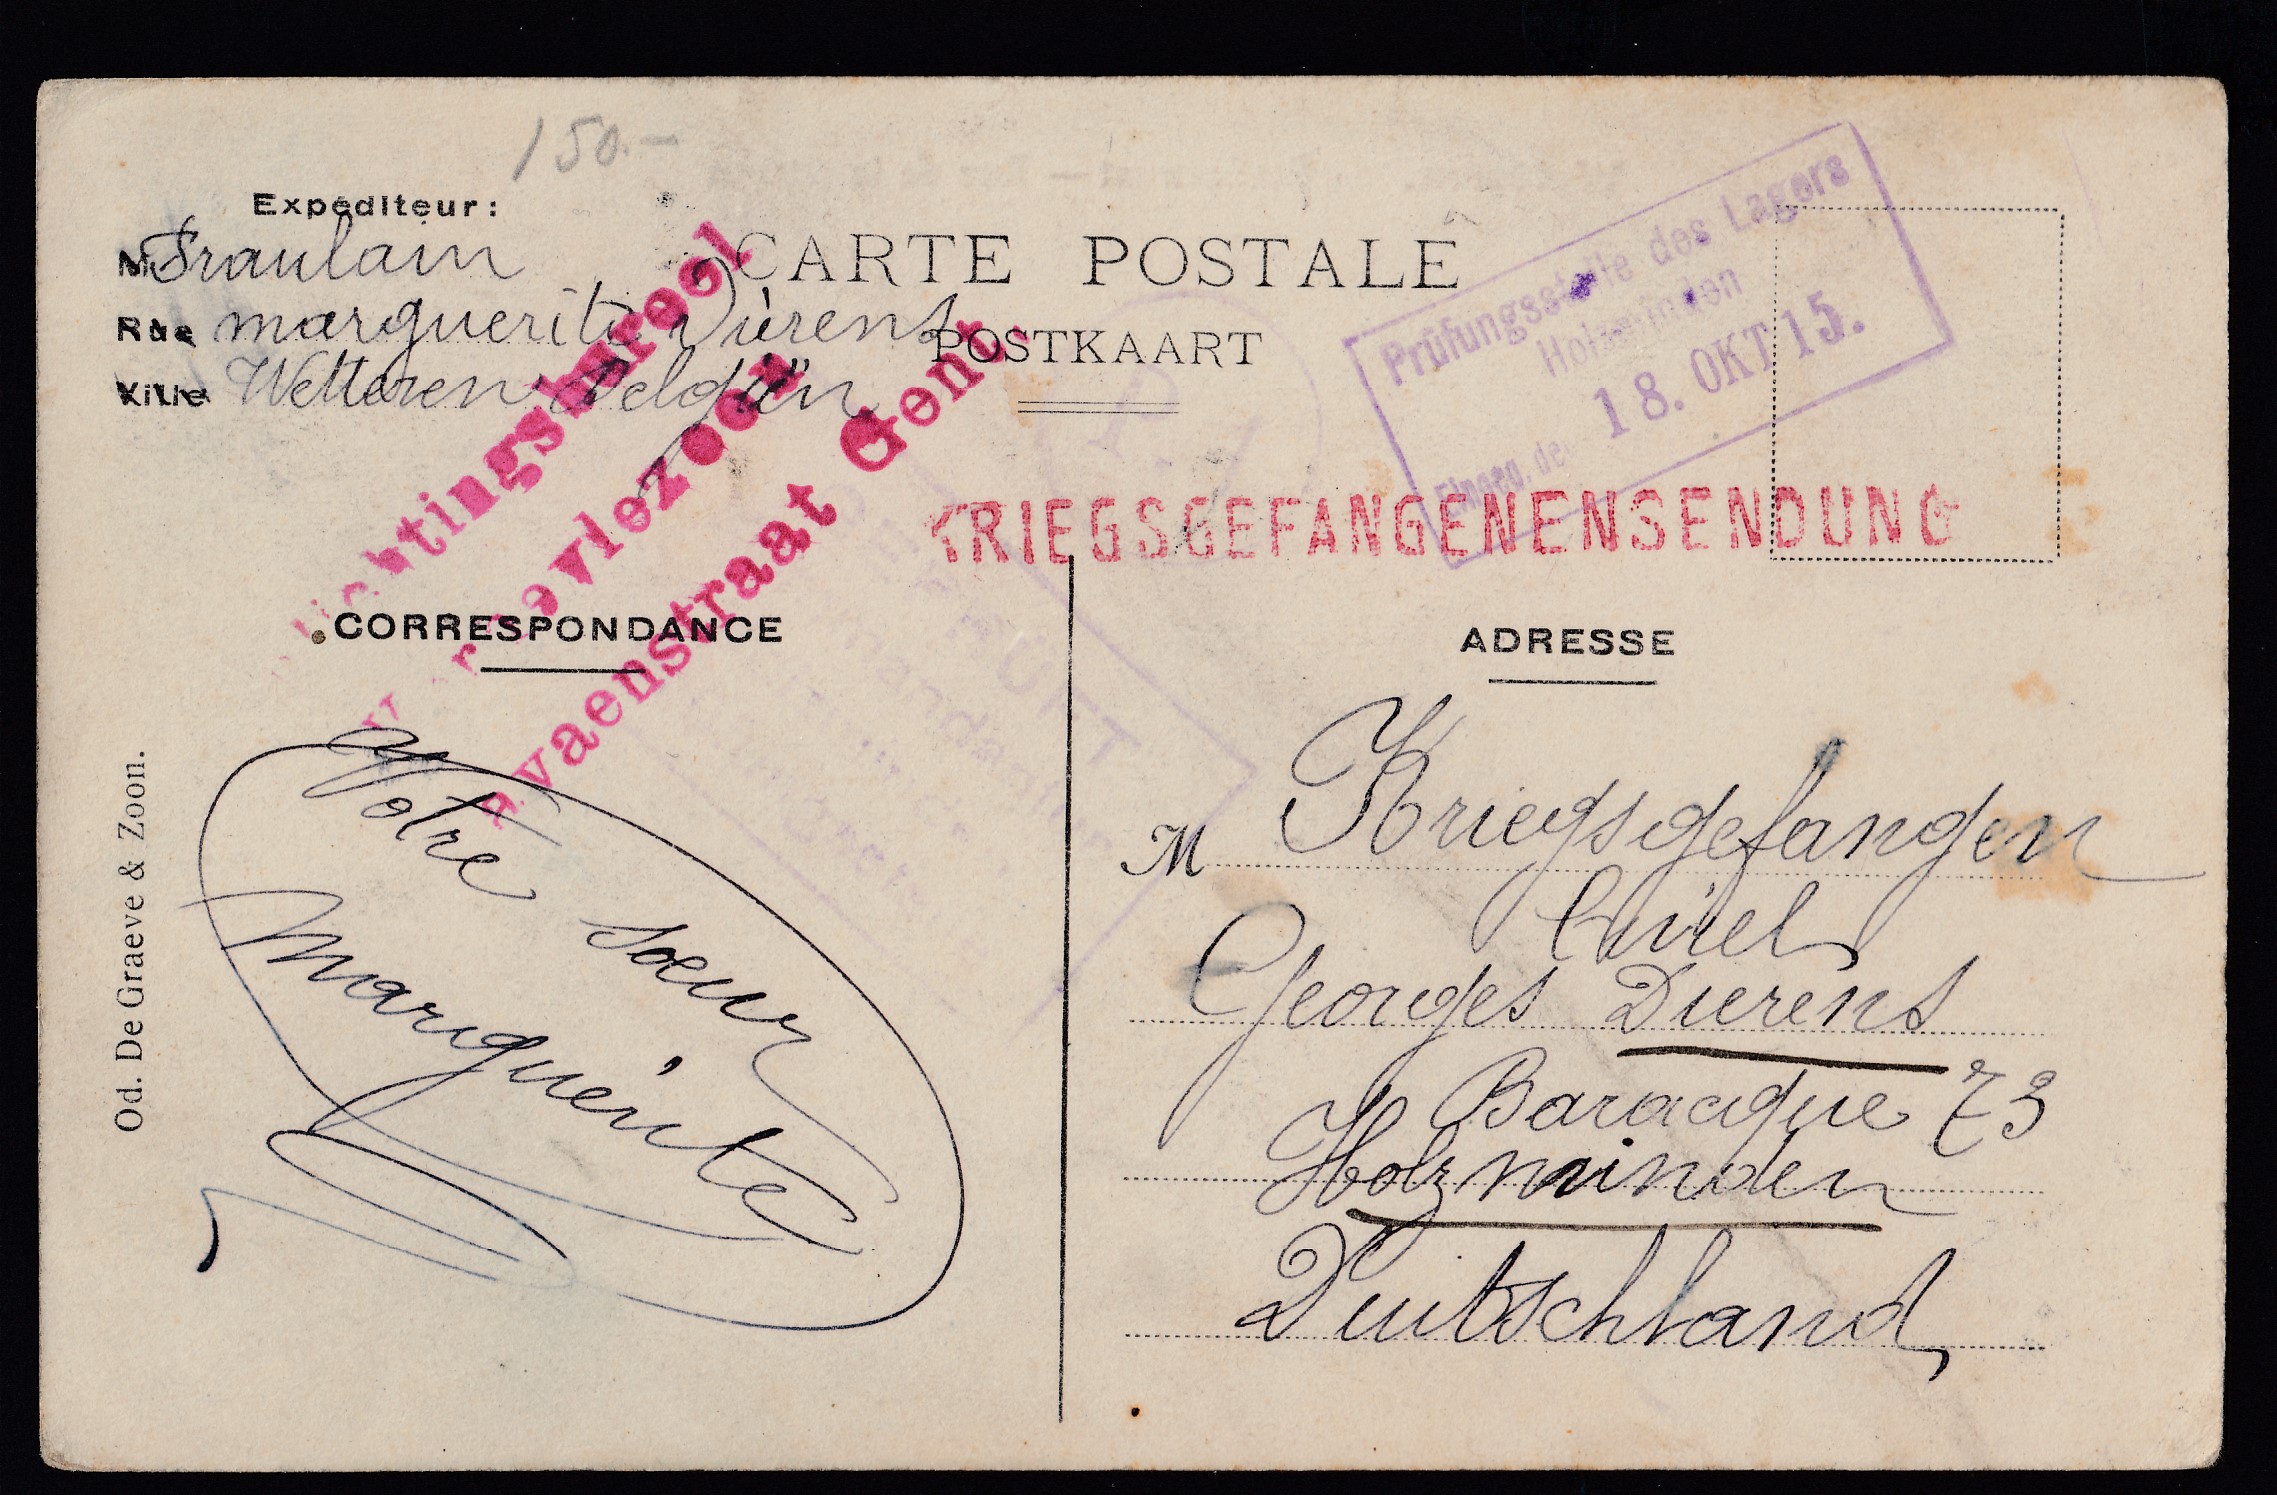 150.-
Expéditeur:
M Fraulain
Rue marguerite Dierens
Ville Wetteren Belgiën
CARTE POSTALE
POSTKAART
Prüfungsstelle des Lagers
Holzminden
18. OKT 15.
Eingeg. de
chtingsbureel
vlezoo
avaenstraat Gent.
KRIEGSGEFANGENENSENDUNG
CORRESPONDANCE
ADRESSE
Votre soeur
Marguérite
Od. De Graeve & Zoon.
M Kriegsgefangen
Civiel
Georges Dierens
Baracque 73
Holzminden
Duitschland